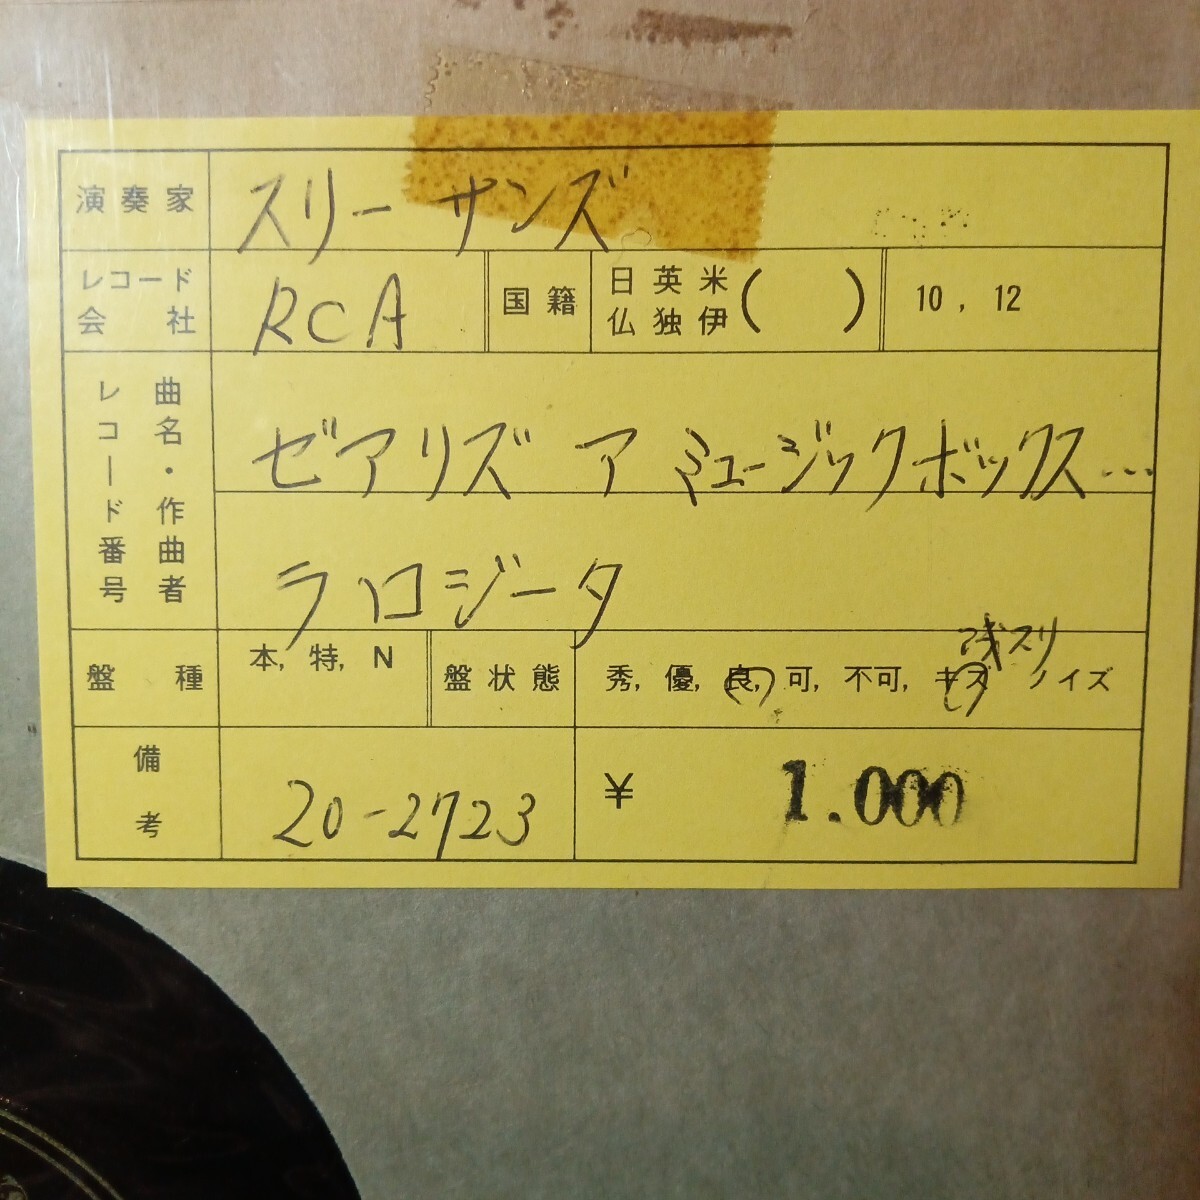 演奏家 スリー サンズ
レコード会社 RCA 国籍 日 英 米 仏 独 伊 ( ) 10 , 12
曲名・作曲者 レコード番号 ゼアリズ ア ミュージックボックス…
ラ ロジータ
浅スリ
盤種 本, 特, N 盤状態 秀, 優, 良, 可, 不可, キズ ノイズ
備考 20-2723 ¥ 1.000